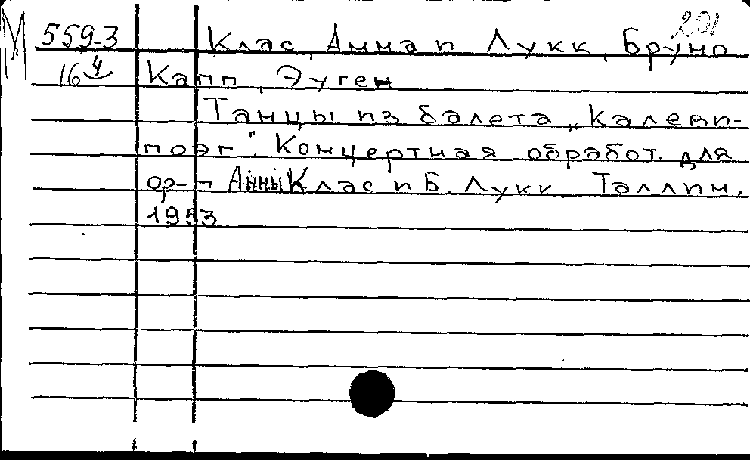 М 559-3 Клас, Анна и Лукк, Бруно 201
16 Капп, Эуген
Танцы из балета „Калеви-
поэг". Концертная обработ. для
ф-п Анны Клас и Б. Лукк. Таллин,
1953